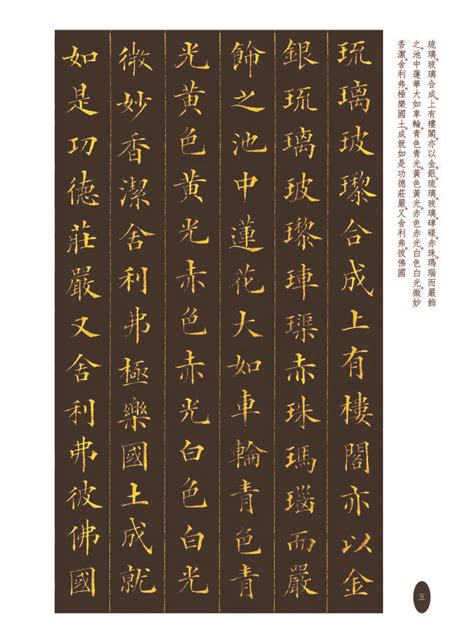 琉璃玻璃合成上有樓閣亦以金銀琉璃玻璃硨磲赤珠瑪瑙而嚴飾
之池中蓮華大如車輪青色青光黃色黃光赤色赤光白色白光微妙
香潔舍利弗極樂國土成就如是功德莊嚴又舍利弗彼佛國
琉璃玻瓈合成上有樓閣亦以金
銀琉璃玻瓈硨璖赤珠瑪瑙而嚴
飾之池中蓮花大如車輪青色青
光黃色黃光赤色赤光白色白光
微妙香潔舍利弗極樂國土成就
如是功德莊嚴又舍利弗彼佛國
五